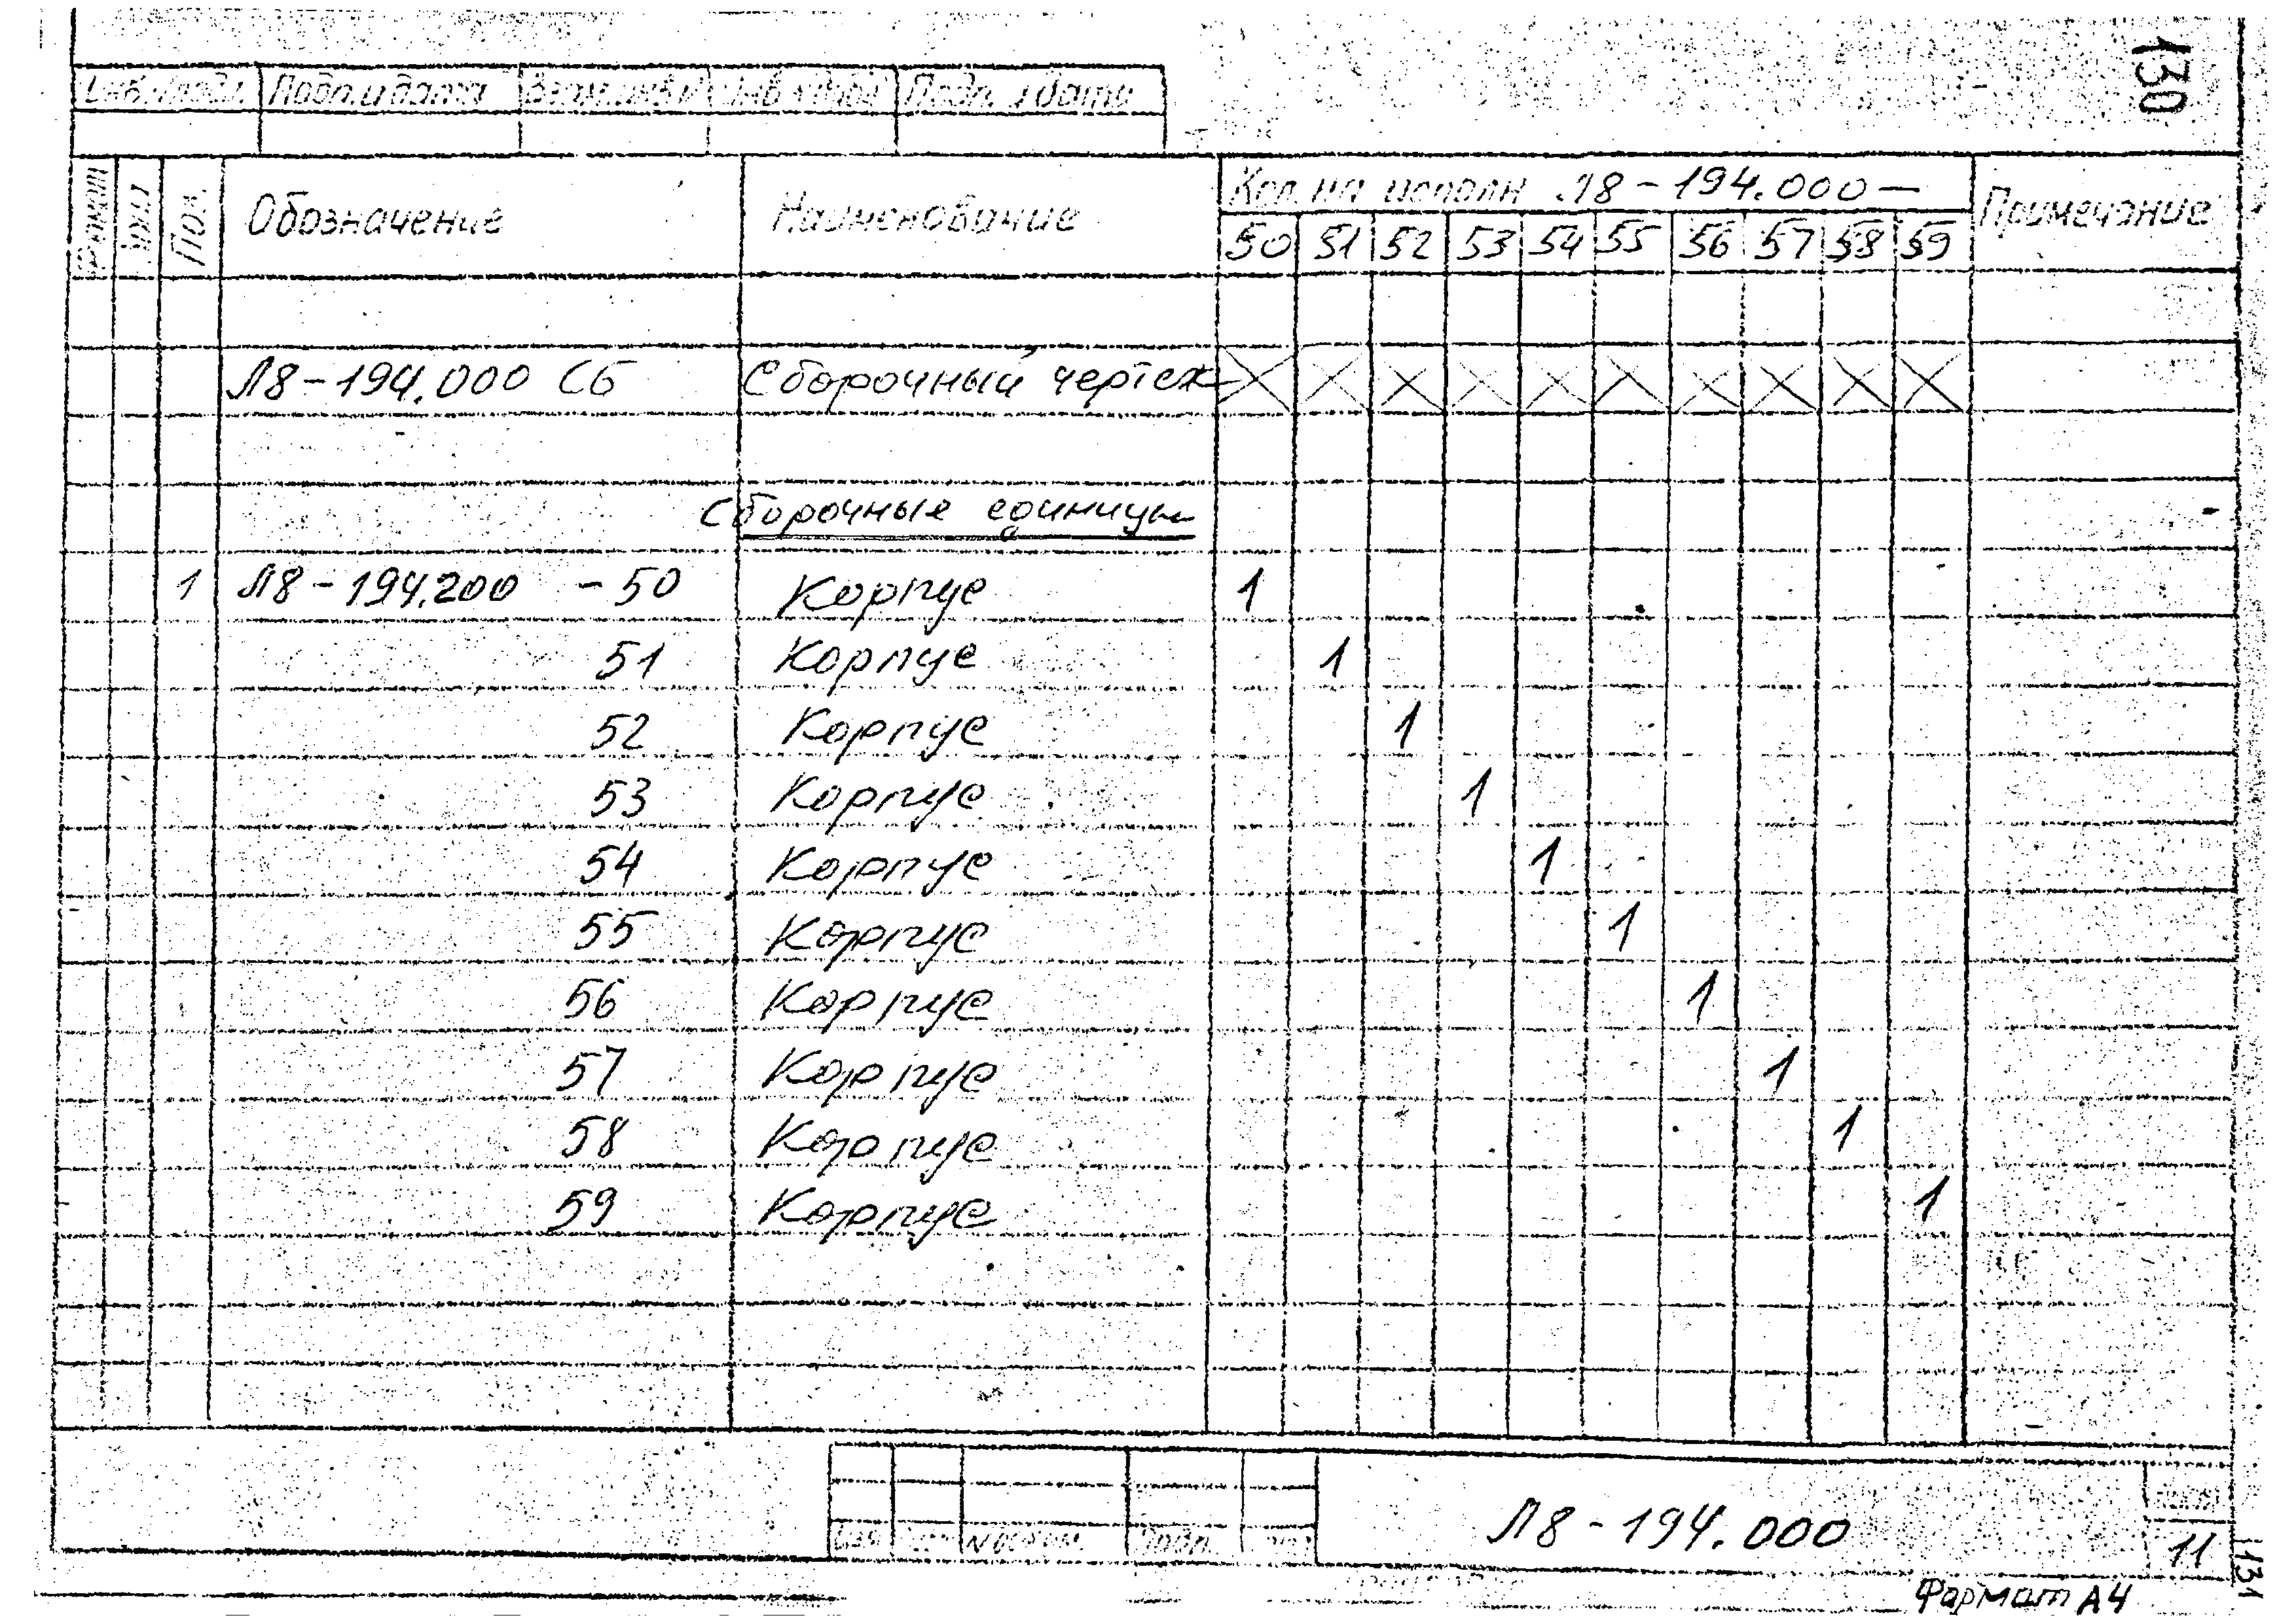 130
Инв.№подл. Подп.и дата Взам.инв.№ Инв.№дубл. Подп. и дата
Формат Зона Поз. Обозначение Наименование Кол. на исполн Л8-194.000- Примечание
50 51 52 53 54 55 56 57 58 59
Л8-194.000 СБ Сборочный чертеж X X X X X X X X X X
Сборочные единицы
1 Л8-194.200 -50 Корпус 1
51 Корпус 1
52 Корпус 1
53 Корпус 1
54 Корпус 1
55 Корпус 1
56 Корпус 1
57 Корпус 1
58 Корпус 1
59 Корпус 1
Изм Лист № докум. Подп. Дата
Л8-194.000
Лист
11
131
Формат А4